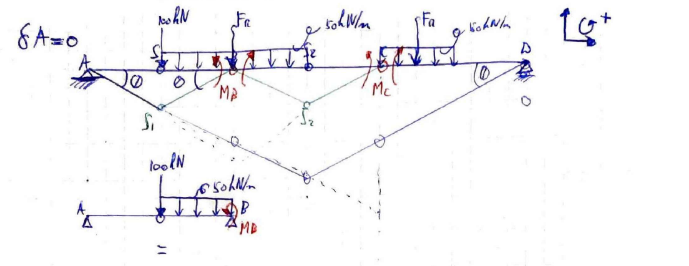 δA=0
100kN FR 50kN/m FR 50kN/m
A θ θ MB MC θ D
f1 f2
100kN 50kN/m
A B
MB
=